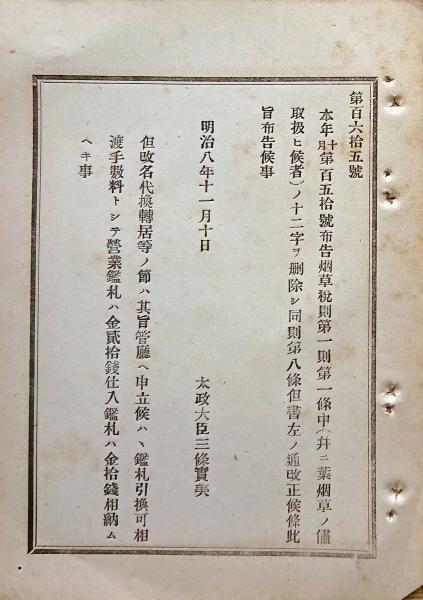 第百六拾五號
本年十月第百五拾號布告烟草稅則第一則第一條中(幷ニ葉烟草ノ儘
取扱ヒ候者)ノ十二字ヲ刪除シ同則第八條但書左ノ通改正候條此
旨布告候事
明治八年十一月十日
太政大臣三條實美
但改名代換轉居等ノ節ハ其旨管廳ヘ申立候ハヽ鑑札引換可相
渡手數料トシテ營業鑑札ハ金貳拾錢仕入鑑札ハ金拾錢相納ム
ヘキ事